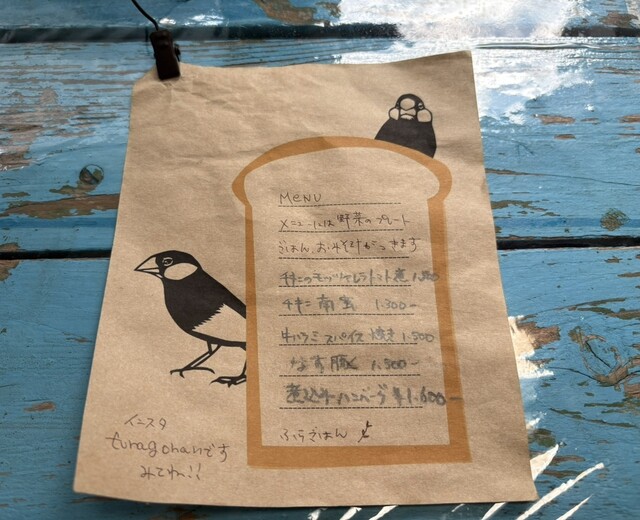 MENU
メニューには野菜のプレート
ごはん、おみそ汁がつきます
チキンのモッツァレラトマト煮 1,500
チキン南蛮 1.300-
牛ハラミスパイス焼き 1.500
なす豚 1.300-
煮込みハンバーグ ¥1.600-
ふらごはん
インスタ
turagohanです
みてね!!